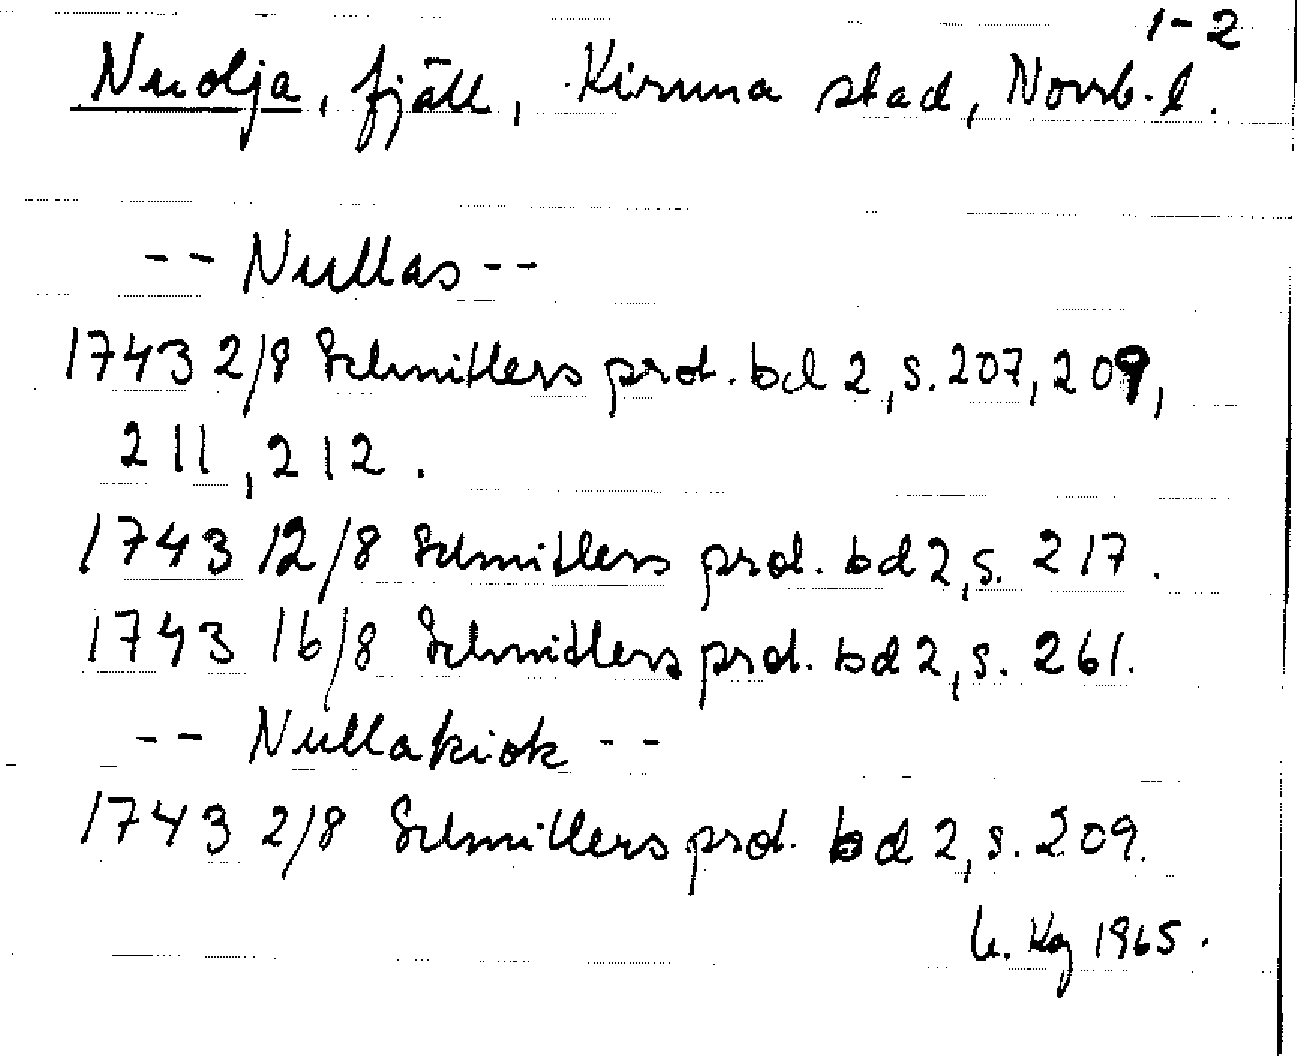 1-2
Nuolja, fjäll, Kiruna stad, Norrb. l.
-- Nullas --
1743 2/8 Schnitlers prot. bd 2, s. 207, 209,
211, 212.
1743 12/8 Schnitlers prot. bd 2, s. 217.
1743 16/8 Schnitlers prot. bd 2, s. 261.
-- Nullakiok --
1743 2/8 Schnitlers prot. bd 2, s. 209.
Kg 1965.